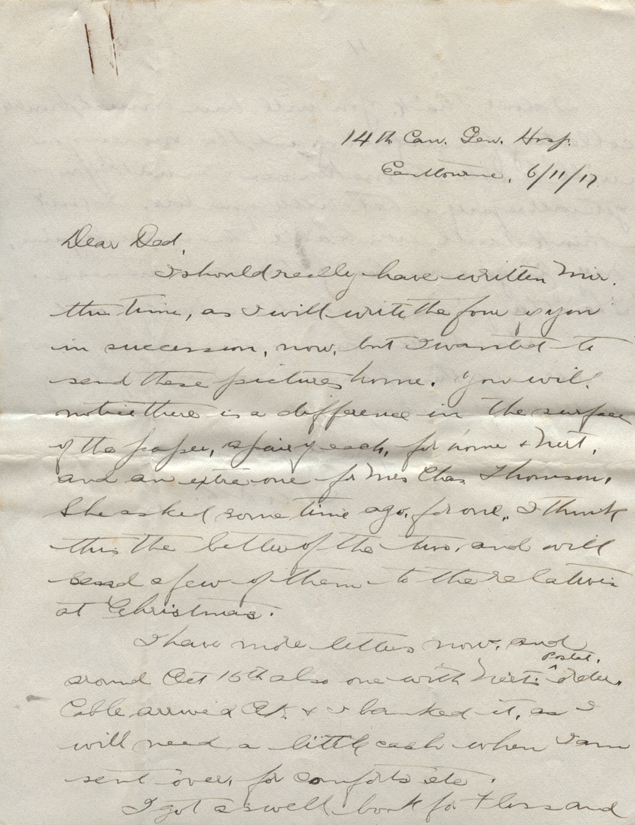 14th Can. Gen. Hosp.
Eastbourne, 6/11/17
Dear Dad,
I should really have written Mir.
this time, as I will write the four of you
in succession, now, but I wanted to
send these pictures home. You will
notice there is a difference in the surface
of the paper, a pair of each, for home & Nert,
and an extra one for Mrs Chas Thomson.
She asked some time ago, for one. I think
this the better of the two, and will
send a few of them to the relatives
at Christmas.
I have more letters now, and
around Oct 15th also one with Nert's Postal order.
Cable arrived O.K. & I banked it, as I
will need a little cash when I am
sent over, for comforts etc.
I got a swell book for Floss and